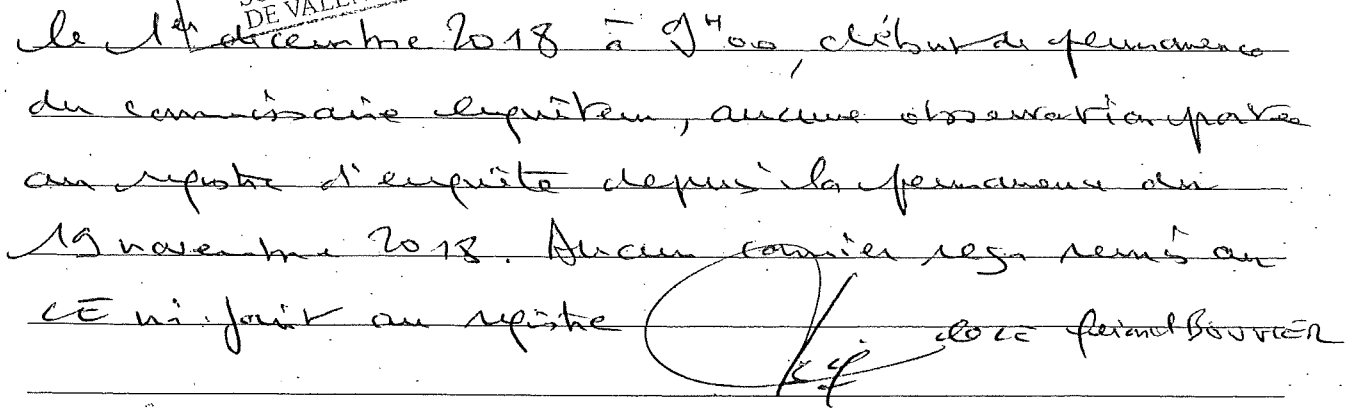 DE VALEN
le 1er décembre 2018 à 9H00, début de permanence
du commissaire enquêteur, aucune observation portée
au registre d'enquête depuis la permanence du
19 novembre 2018. Aucun courrier reçu remis au
CE ni joint au registre
le CE BOUVIER